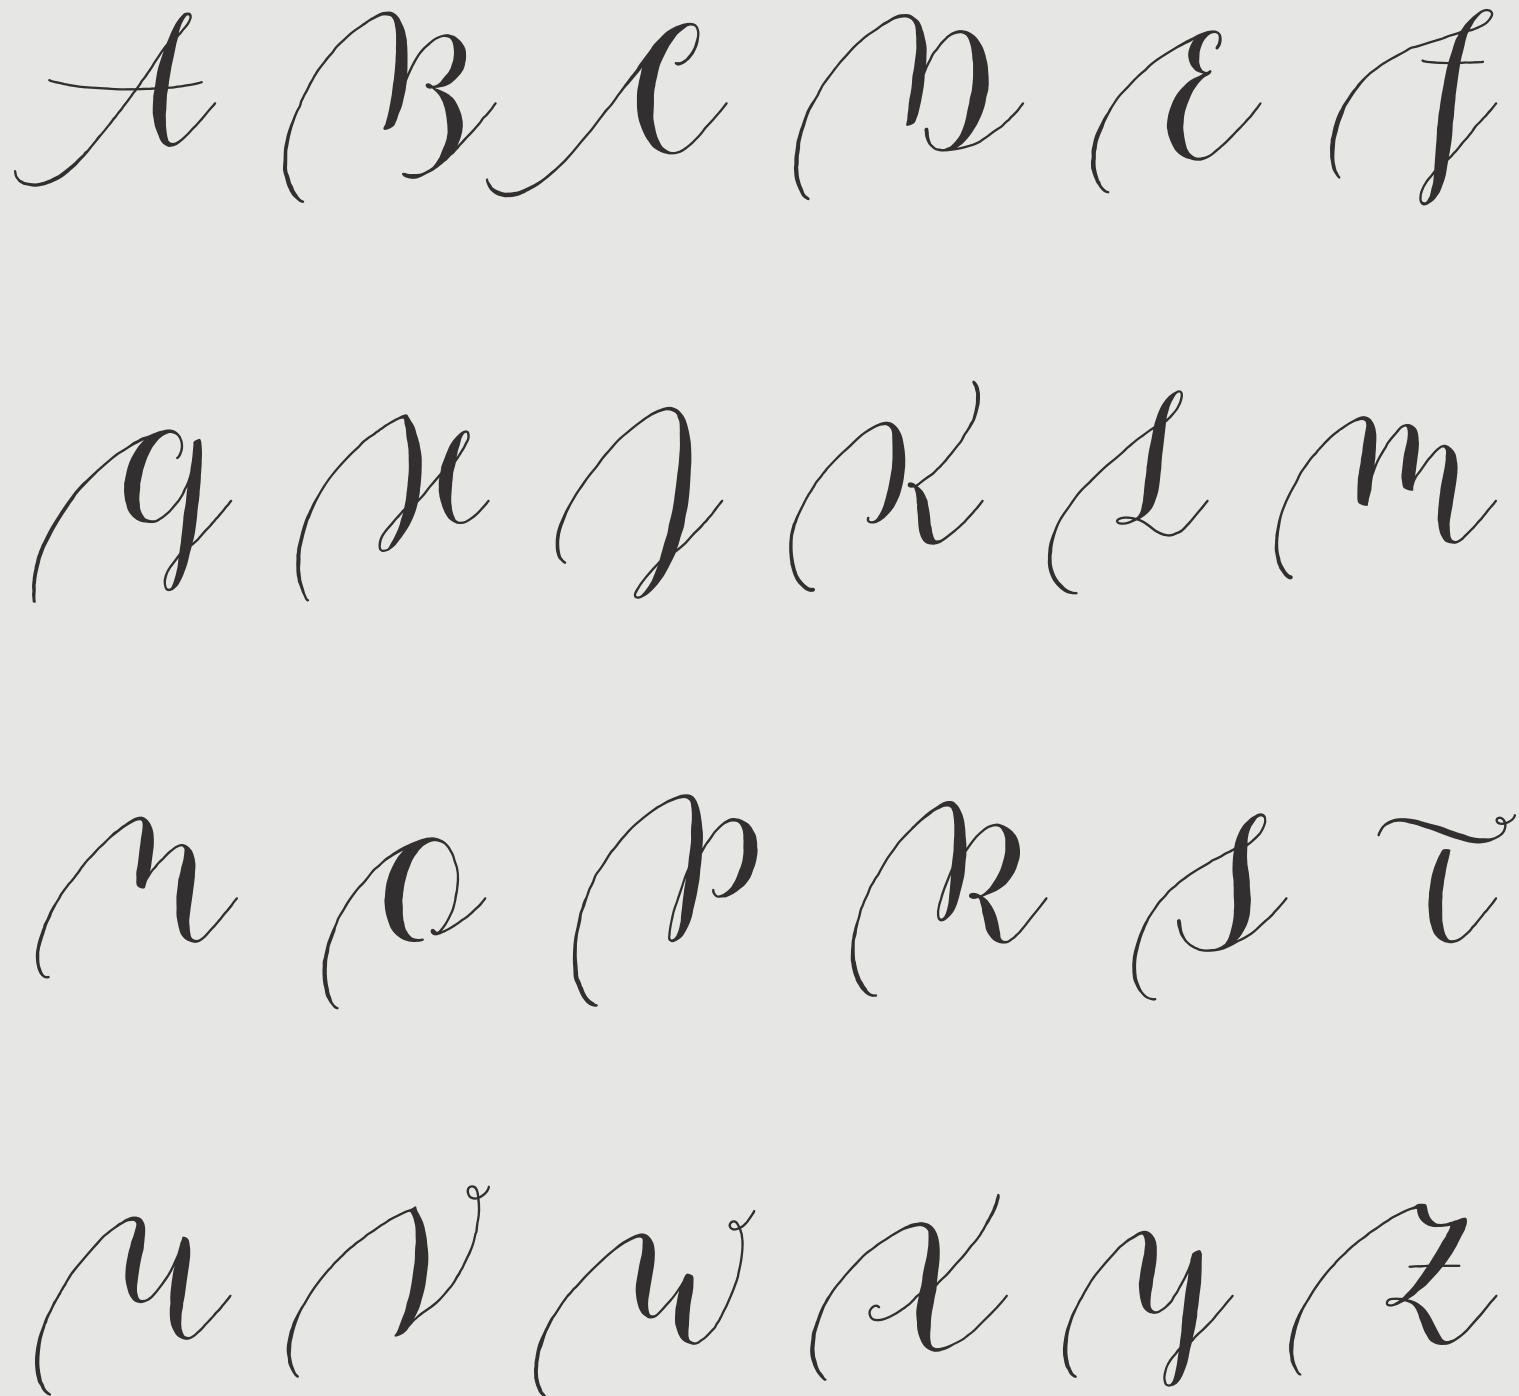 A B C D E F
G H J K L M
N O P R S T
U V W X Y Z